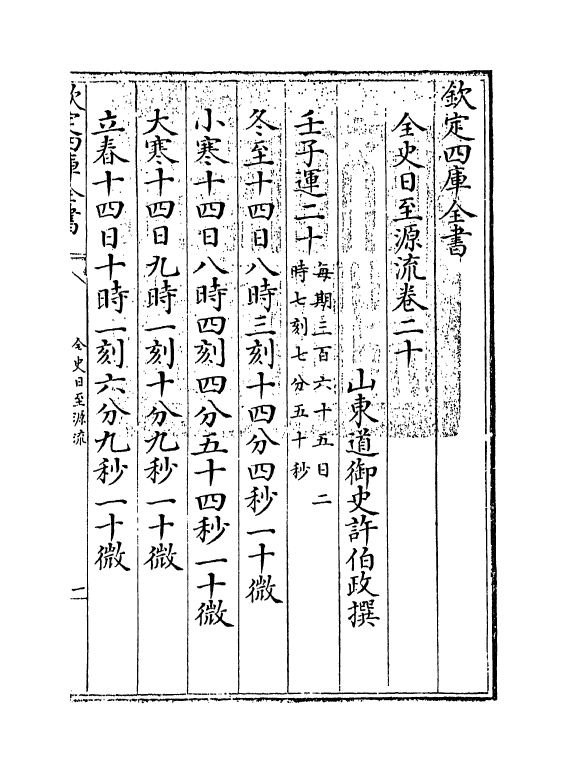 欽定四庫全書
全史日至源流卷二十
山東道御史許伯政撰
壬子運二十每期三百六十五日二
時七刻七分五十秒
冬至十四日八時三刻十四分四秒一十微
小寒十四日八時四刻四分五十四秒一十微
大寒十四日九時一刻十分九秒一十微
立春十四日十時一刻六分九秒一十微
欽定四庫全書
全史日至源流
一